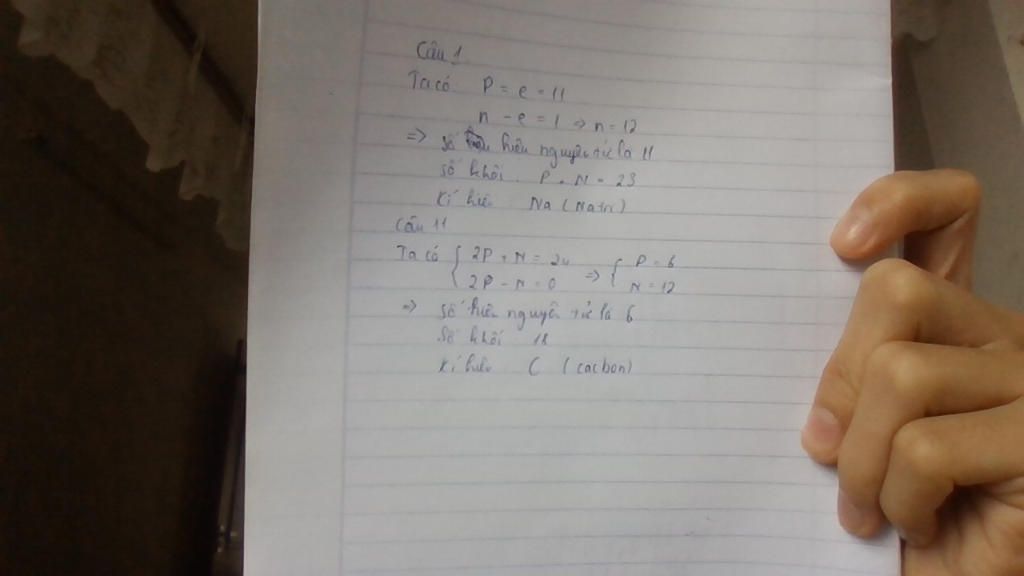 Câu 1
Ta có P = e = 11
n - e = 1 => n = 12
=> Số hiệu nguyên tử là 11
Số khối P + N = 23
Kí hiệu Na (Natri)
Câu 11
Ta có { 2P + N = 24 => { P = 6
{ 2P - N = 0 { N = 12
=> Số hiệu nguyên tử là 6
Số khối 18
Kí hiệu C (cacbon)